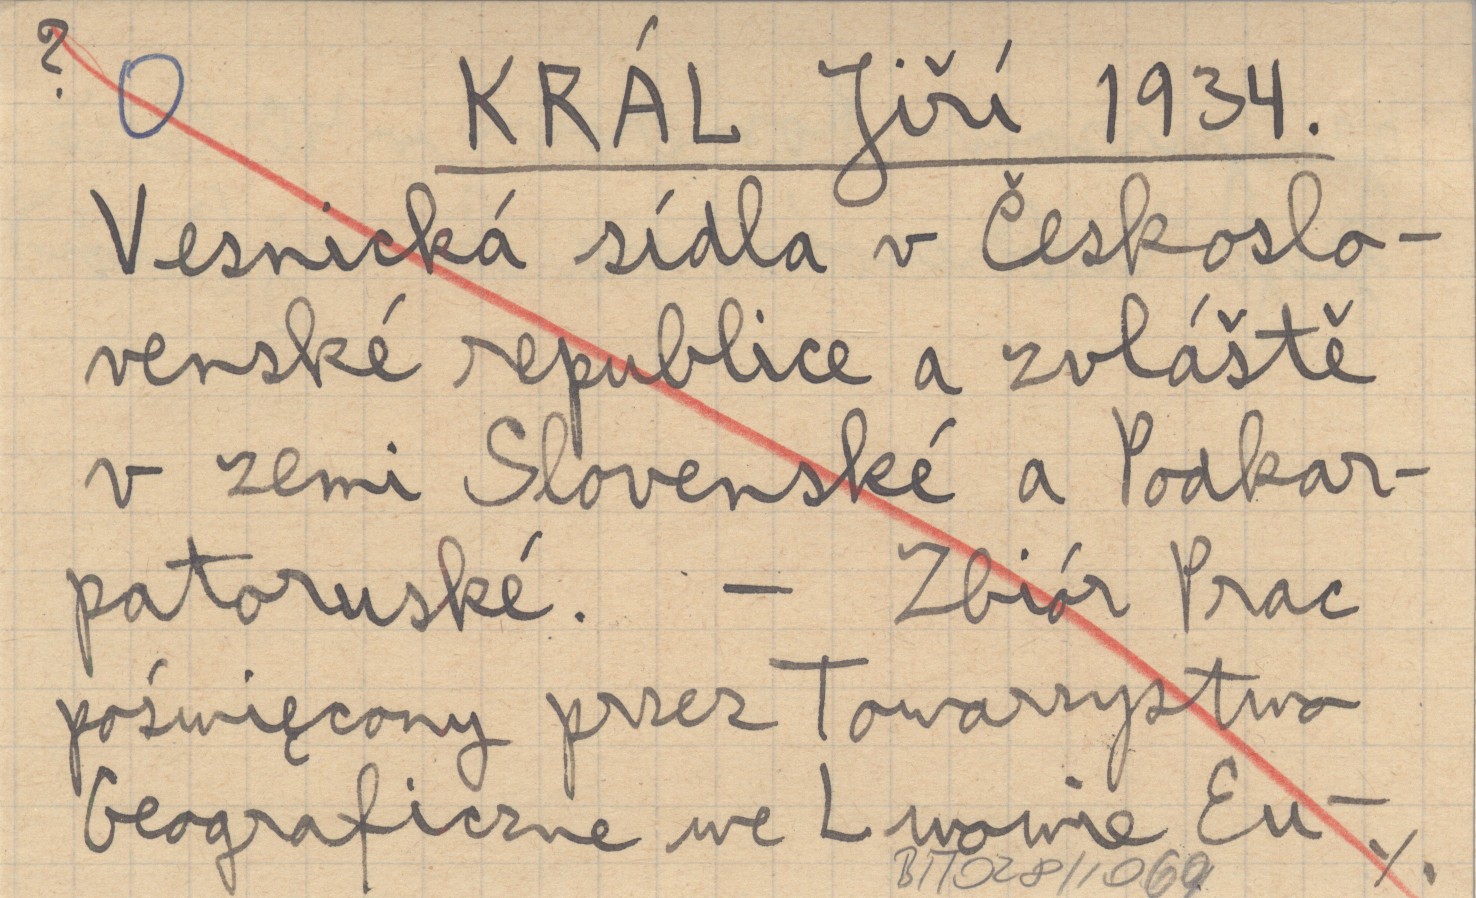 ? O KRÁL Jiří 1934.
Vesnická sídla v Českoslo-
venské republice a zvláště
v zemi Slovenské a Podkar-
patoruské. — Zbiór Prac
poświęcony przez Towarzystwo
Geograficzne we Lwowie Eu-
./.